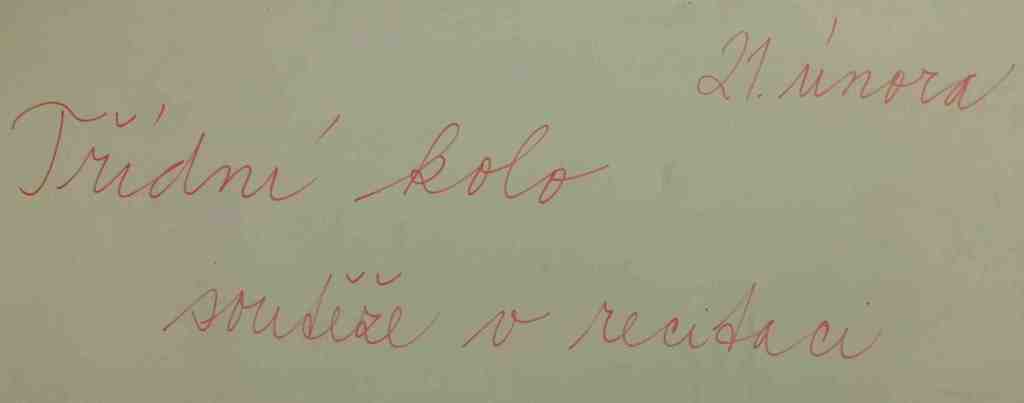 21. února
Třídní kolo
soutěže v recitaci